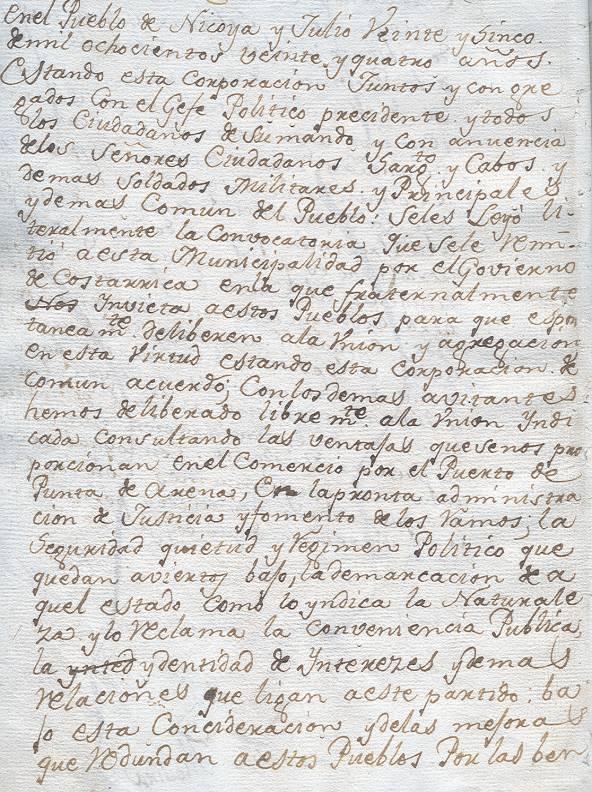 Enel Pueblo de Nicoya y Julio Veinte y Sinco.
demil ochocientos veinte y quatro años.
Estando esta corporacion Juntos y congre
gados Con el Gefe Politico precidente. y todos
los Ciudadanos de sumando y con anuencia
delos Señores Ciudadanos Sargto. y Cabos. y
demas Soldados Militares. y Principales
ydemas Comun del Pueblo: Seles Leyó li-
teralmente la Convocatoria que sele remi-
tió aesta Municipalidad por elGovierno
de Costarrica enla que fraternalmente
Nos Invieta aestos Pueblos para que espon
taneamte. deliberen ala Vnion y agregacion
en esta Virtud estando esta corporacion. de
comun acuerdo; Conlosdemas avitantes
hemos deliberado libremte. ala Vnion Yndi
cada Consultando las ventajas quesenos pro
porcionan enel Comercio por el Puerto de
Punta de Arena, En lapronta administra
cion de Justicia yfomento delos Ramos; la
Seguridad quietud y Regimen Politico que
quedan aviertos bajo, lademarcacion de a
quel estado Como lo yndica la Naturale
za y lo reclama la Conveniencia Publica,
la ynted ydentidad de Interezes ydemas
relaciones que ligan aeste partido: ba
jo esta Concideracion ydelas mejoras
que redundan aestos Pueblos Por las ben